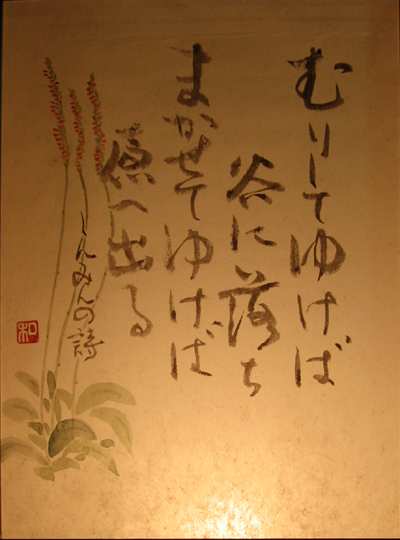 むりしてゆけば
谷に落ち
まかせてゆけば
原へ出る
しんみんの詩
和